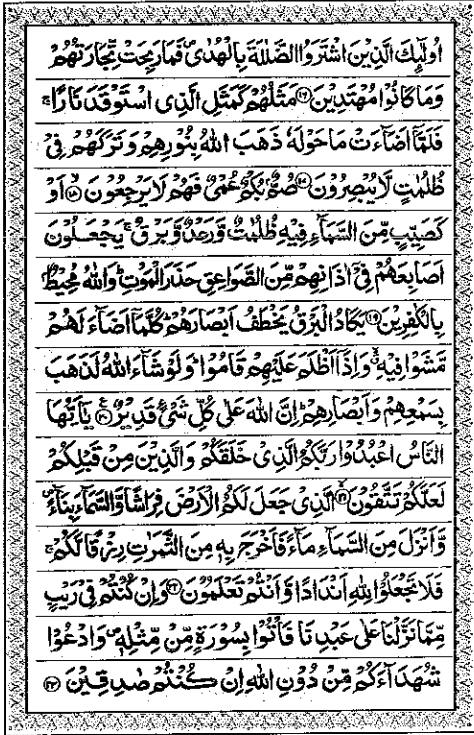 اُولٰٓئِكَ الَّذِيْنَ اشْتَرَوُا الضَّلٰلَةَ بِالْهُدٰى فَمَا رَبِحَتْ تِّجَارَتُهُمْ
وَمَا كَانُوْا مُهْتَدِيْنَ ﴿۱۶﴾ مَثَلُهُمْ كَمَثَلِ الَّذِى اسْتَوْقَدَ نَارًا ۚ
فَلَمَّاۤ اَضَآءَتْ مَا حَوْلَهٗ ذَهَبَ اللّٰهُ بِنُوْرِهِمْ وَ تَرَكَهُمْ فِىْ
ظُلُمٰتٍ لَّا يُبْصِرُوْنَ ﴿۱۷﴾ صُمٌّۢ بُكْمٌ عُمْىٌ فَهُمْ لَا يَرْجِعُوْنَ ﴿۱۸﴾ اَوْ
كَصَيِّبٍ مِّنَ السَّمَآءِ فِيْهِ ظُلُمٰتٌ وَّرَعْدٌ وَّبَرْقٌ ۚ يَجْعَلُوْنَ
اَصَابِعَهُمْ فِىْۤ اٰذَانِهِمْ مِّنَ الصَّوَاعِقِ حَذَرَ الْمَوْتِ ؕ وَاللّٰهُ مُحِيْطٌۢ
بِالْكٰفِرِيْنَ ﴿۱۹﴾ يَكَادُ الْبَرْقُ يَخْطَفُ اَبْصَارَهُمْ ؕ كُلَّمَاۤ اَضَآءَ لَهُمْ
مَّشَوْا فِيْهِ ۙ وَاِذَاۤ اَظْلَمَ عَلَيْهِمْ قَامُوْا ؕ وَلَوْ شَآءَ اللّٰهُ لَذَهَبَ
بِسَمْعِهِمْ وَاَبْصَارِهِمْ ؕ اِنَّ اللّٰهَ عَلٰى كُلِّ شَىْءٍ قَدِيْرٌ ﴿۲۰﴾ يٰۤاَيُّهَا
النَّاسُ اعْبُدُوْا رَبَّكُمُ الَّذِىْ خَلَقَكُمْ وَالَّذِيْنَ مِنْ قَبْلِكُمْ
لَعَلَّكُمْ تَتَّقُوْنَ ﴿۲۱﴾ الَّذِىْ جَعَلَ لَكُمُ الْاَرْضَ فِرَاشًا وَّالسَّمَآءَ بِنَآءً
وَّاَنْزَلَ مِنَ السَّمَآءِ مَآءً فَاَخْرَجَ بِهٖ مِنَ الثَّمَرٰتِ رِزْقًا لَّكُمْ ۚ
فَلَا تَجْعَلُوْا لِلّٰهِ اَنْدَادًا وَّاَنْتُمْ تَعْلَمُوْنَ ﴿۲۲﴾ وَاِنْ كُنْتُمْ فِىْ رَيْبٍ
مِّمَّا نَزَّلْنَا عَلٰى عَبْدِنَا فَاْتُوْا بِسُوْرَةٍ مِّنْ مِّثْلِهٖ ۪ وَادْعُوْا
شُهَدَآءَكُمْ مِّنْ دُوْنِ اللّٰهِ اِنْ كُنْتُمْ صٰدِقِيْنَ ﴿۲۳﴾